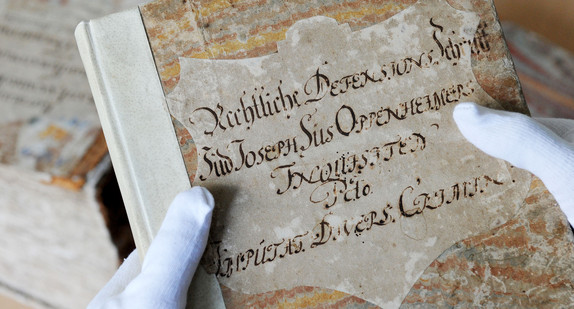 Rechtliche Defensions Schrifft
Jüd Joseph Süs Oppenheimers
Inquisiten
Pcto.
Imputat. Divers. Crimin.